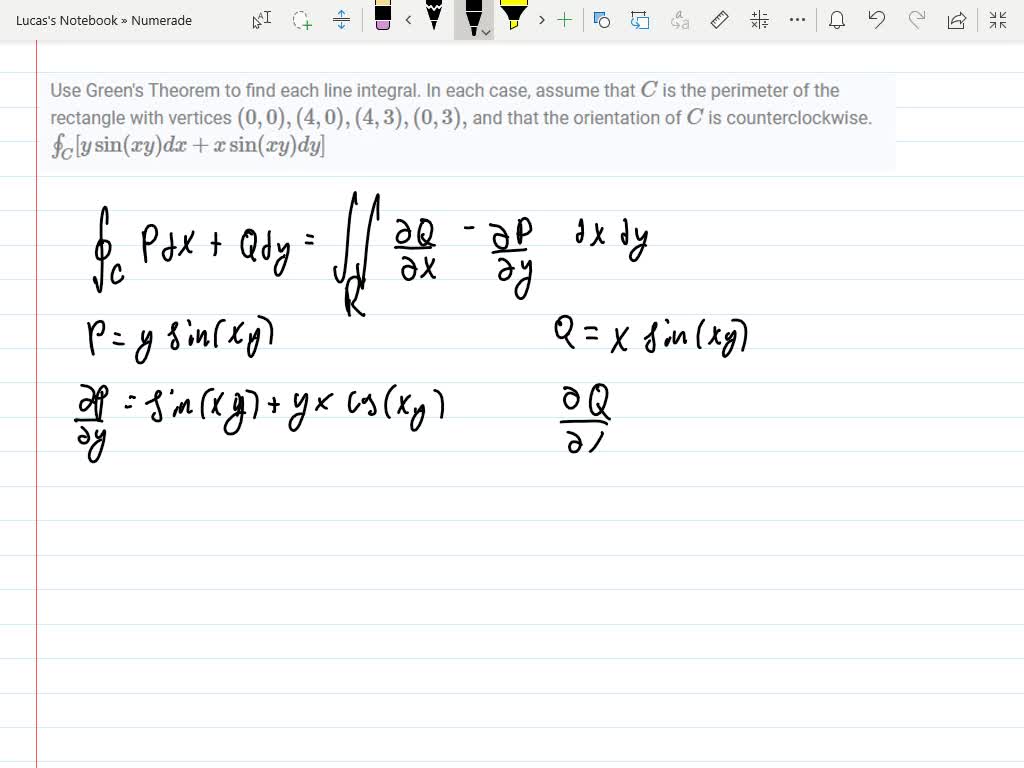 Lucas's Notebook » Numerade
Use Green's Theorem to find each line integral. In each case, assume that C is the perimeter of the
rectangle with vertices (0, 0), (4, 0), (4, 3), (0, 3), and that the orientation of C is counterclockwise.
∮_C[y sin(xy)dx + x sin(xy)dy]
∮_C Pdx + Qdy = ∬_R ∂Q/∂x - ∂P/∂y dx dy
P = y sin(xy) Q = x sin(xy)
∂P/∂y = sin(xy) + yx cos(xy) ∂Q/∂